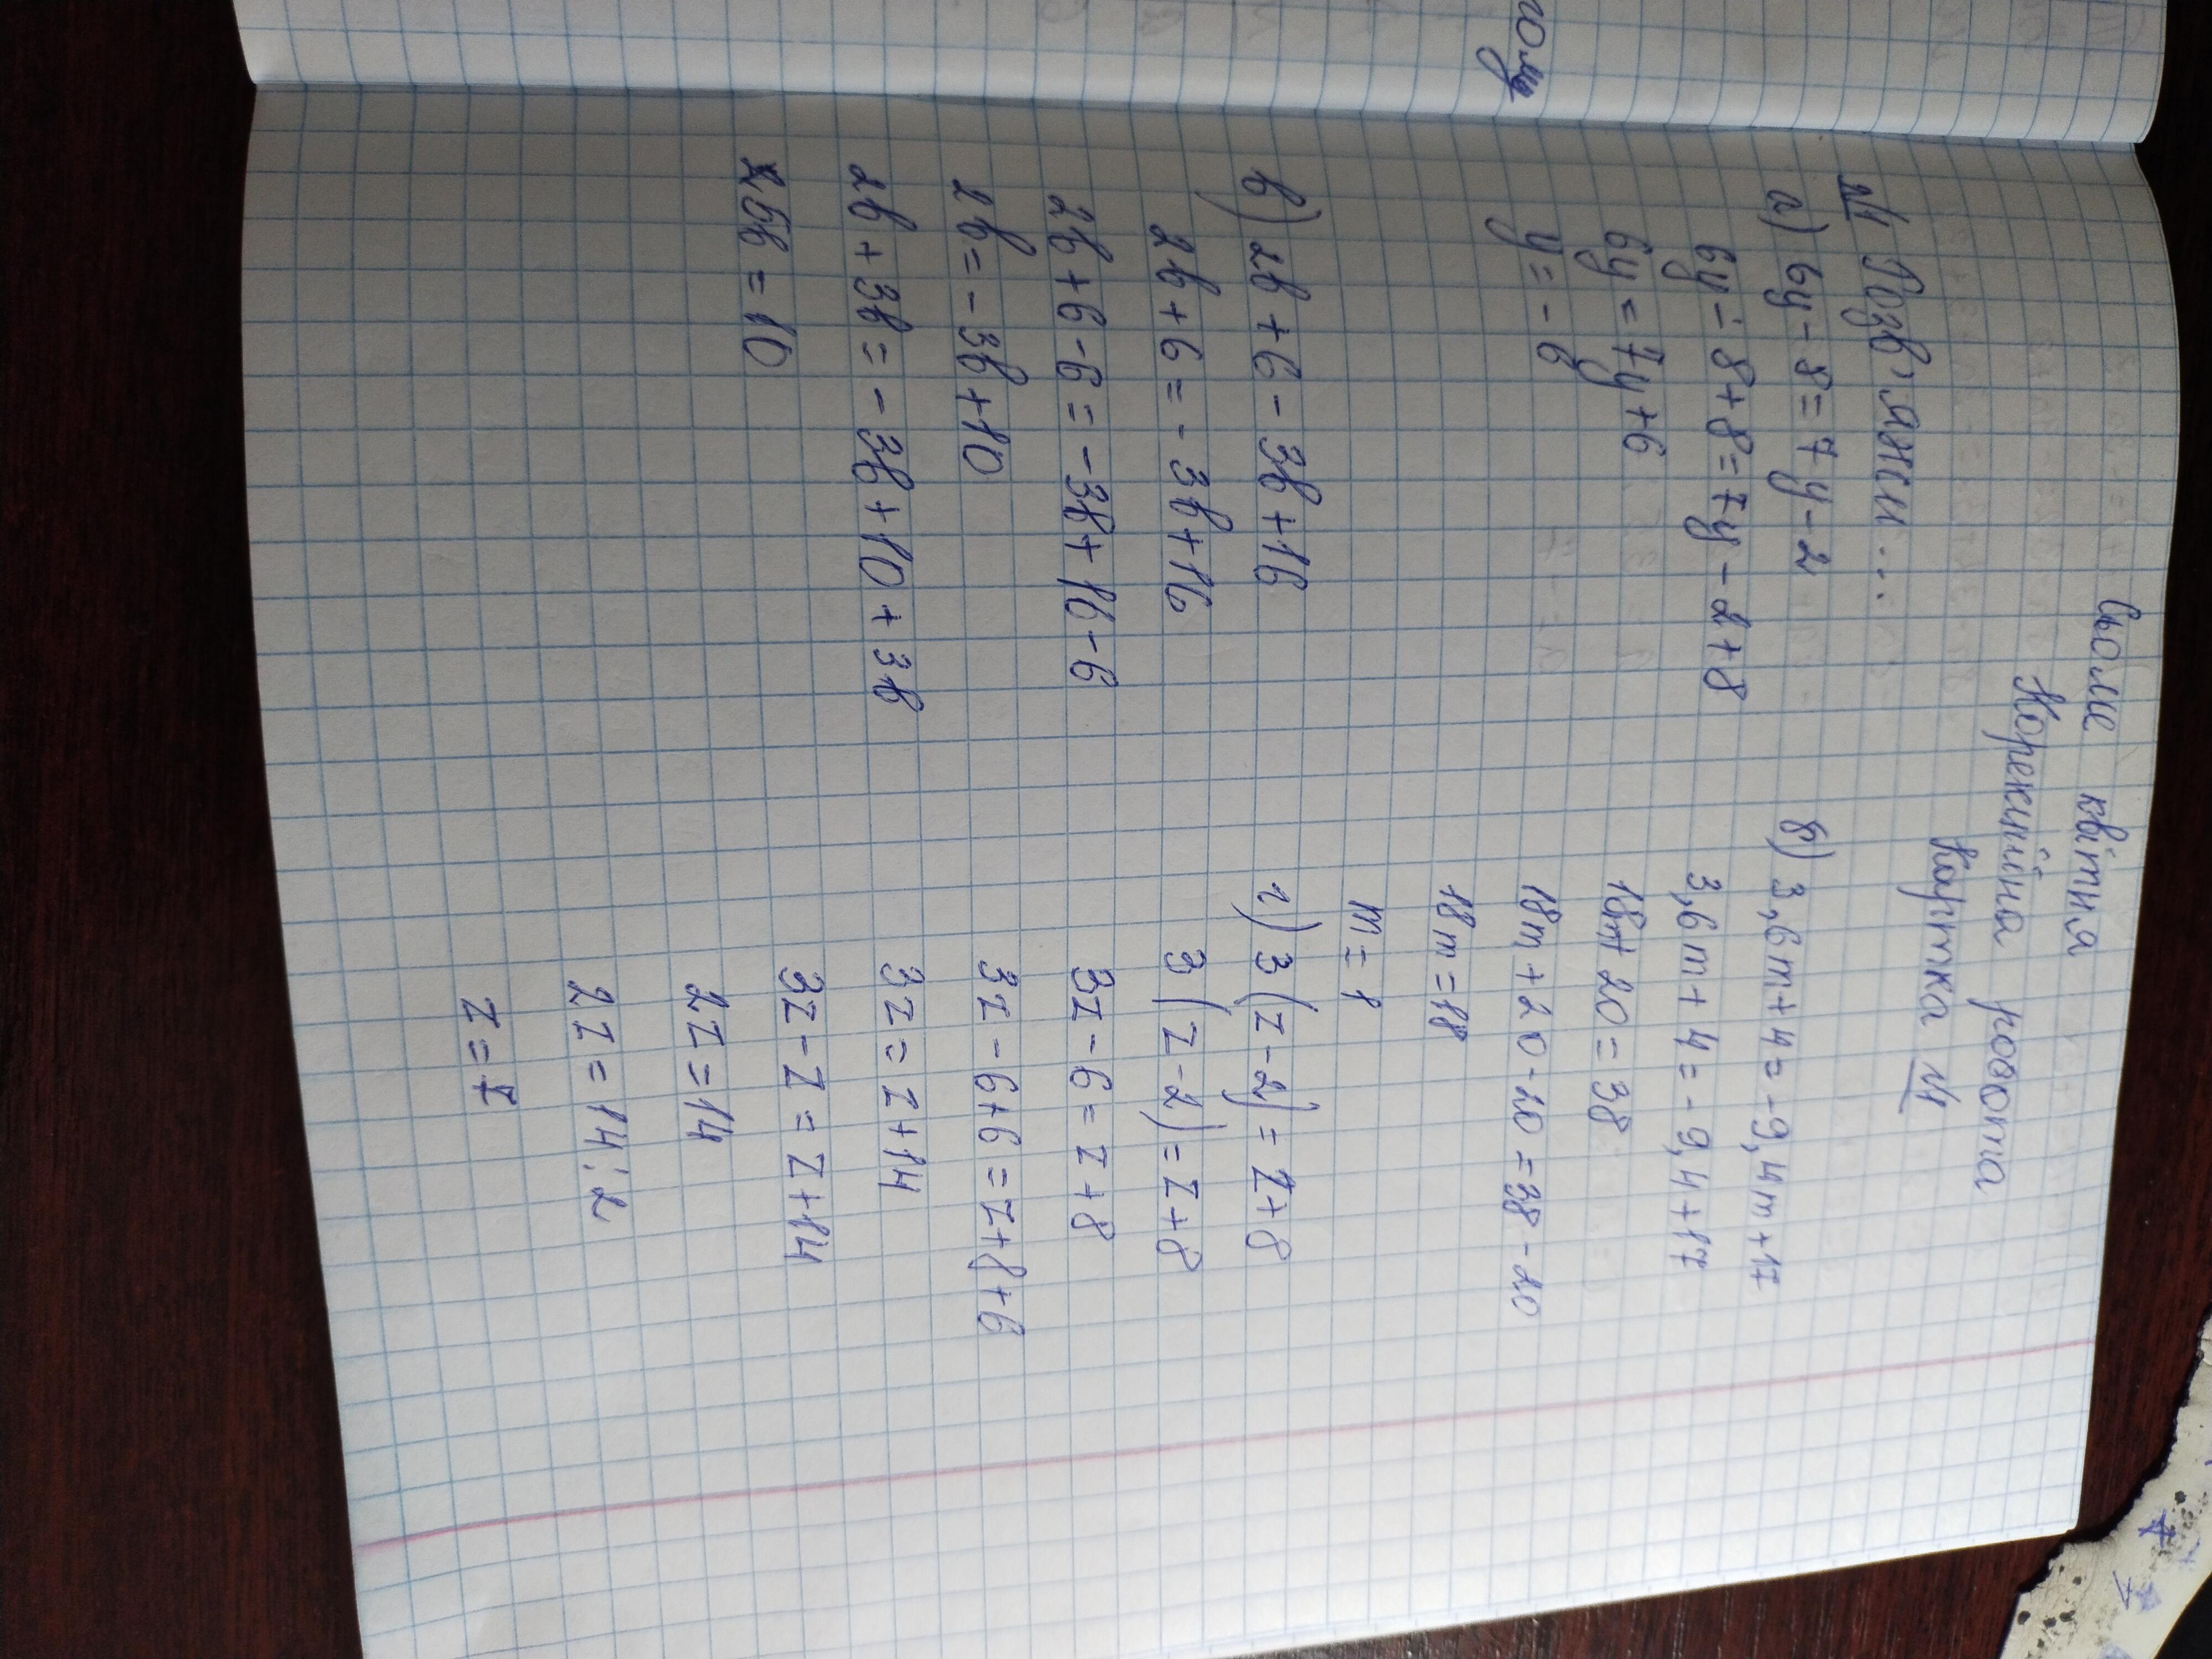 ому
Сьоме квітня
Корекційна робота
Картка №1
№1 Розв'яжи...
а) 6y - 8 = 7y - 2
6y - 8 + 8 = 7y - 2 + 8
6y = 7y + 6
y = - 6
б) 3,6m + 4 = -9,4m + 17
3,6m + 4 = - 9,4 + 17
18m + 20 = 38
18m + 20 - 20 = 38 - 20
18m = 18
m = 1
в) 2b + 6 - 3b + 16
2b + 6 = - 3b + 16
2b + 6 - 6 = - 3b + 16 - 6
2b = - 3b + 10
2b + 3b = - 3b + 10 + 3b
5b = 10
г) 3(z - 2) = z + 8
3(z - 2) = z + 8
3z - 6 = z + 8
3z - 6 + 6 = z + 8 + 6
3z = z + 14
3z - z = z + 14
2z = 14
2z = 14 : 2
z = 7